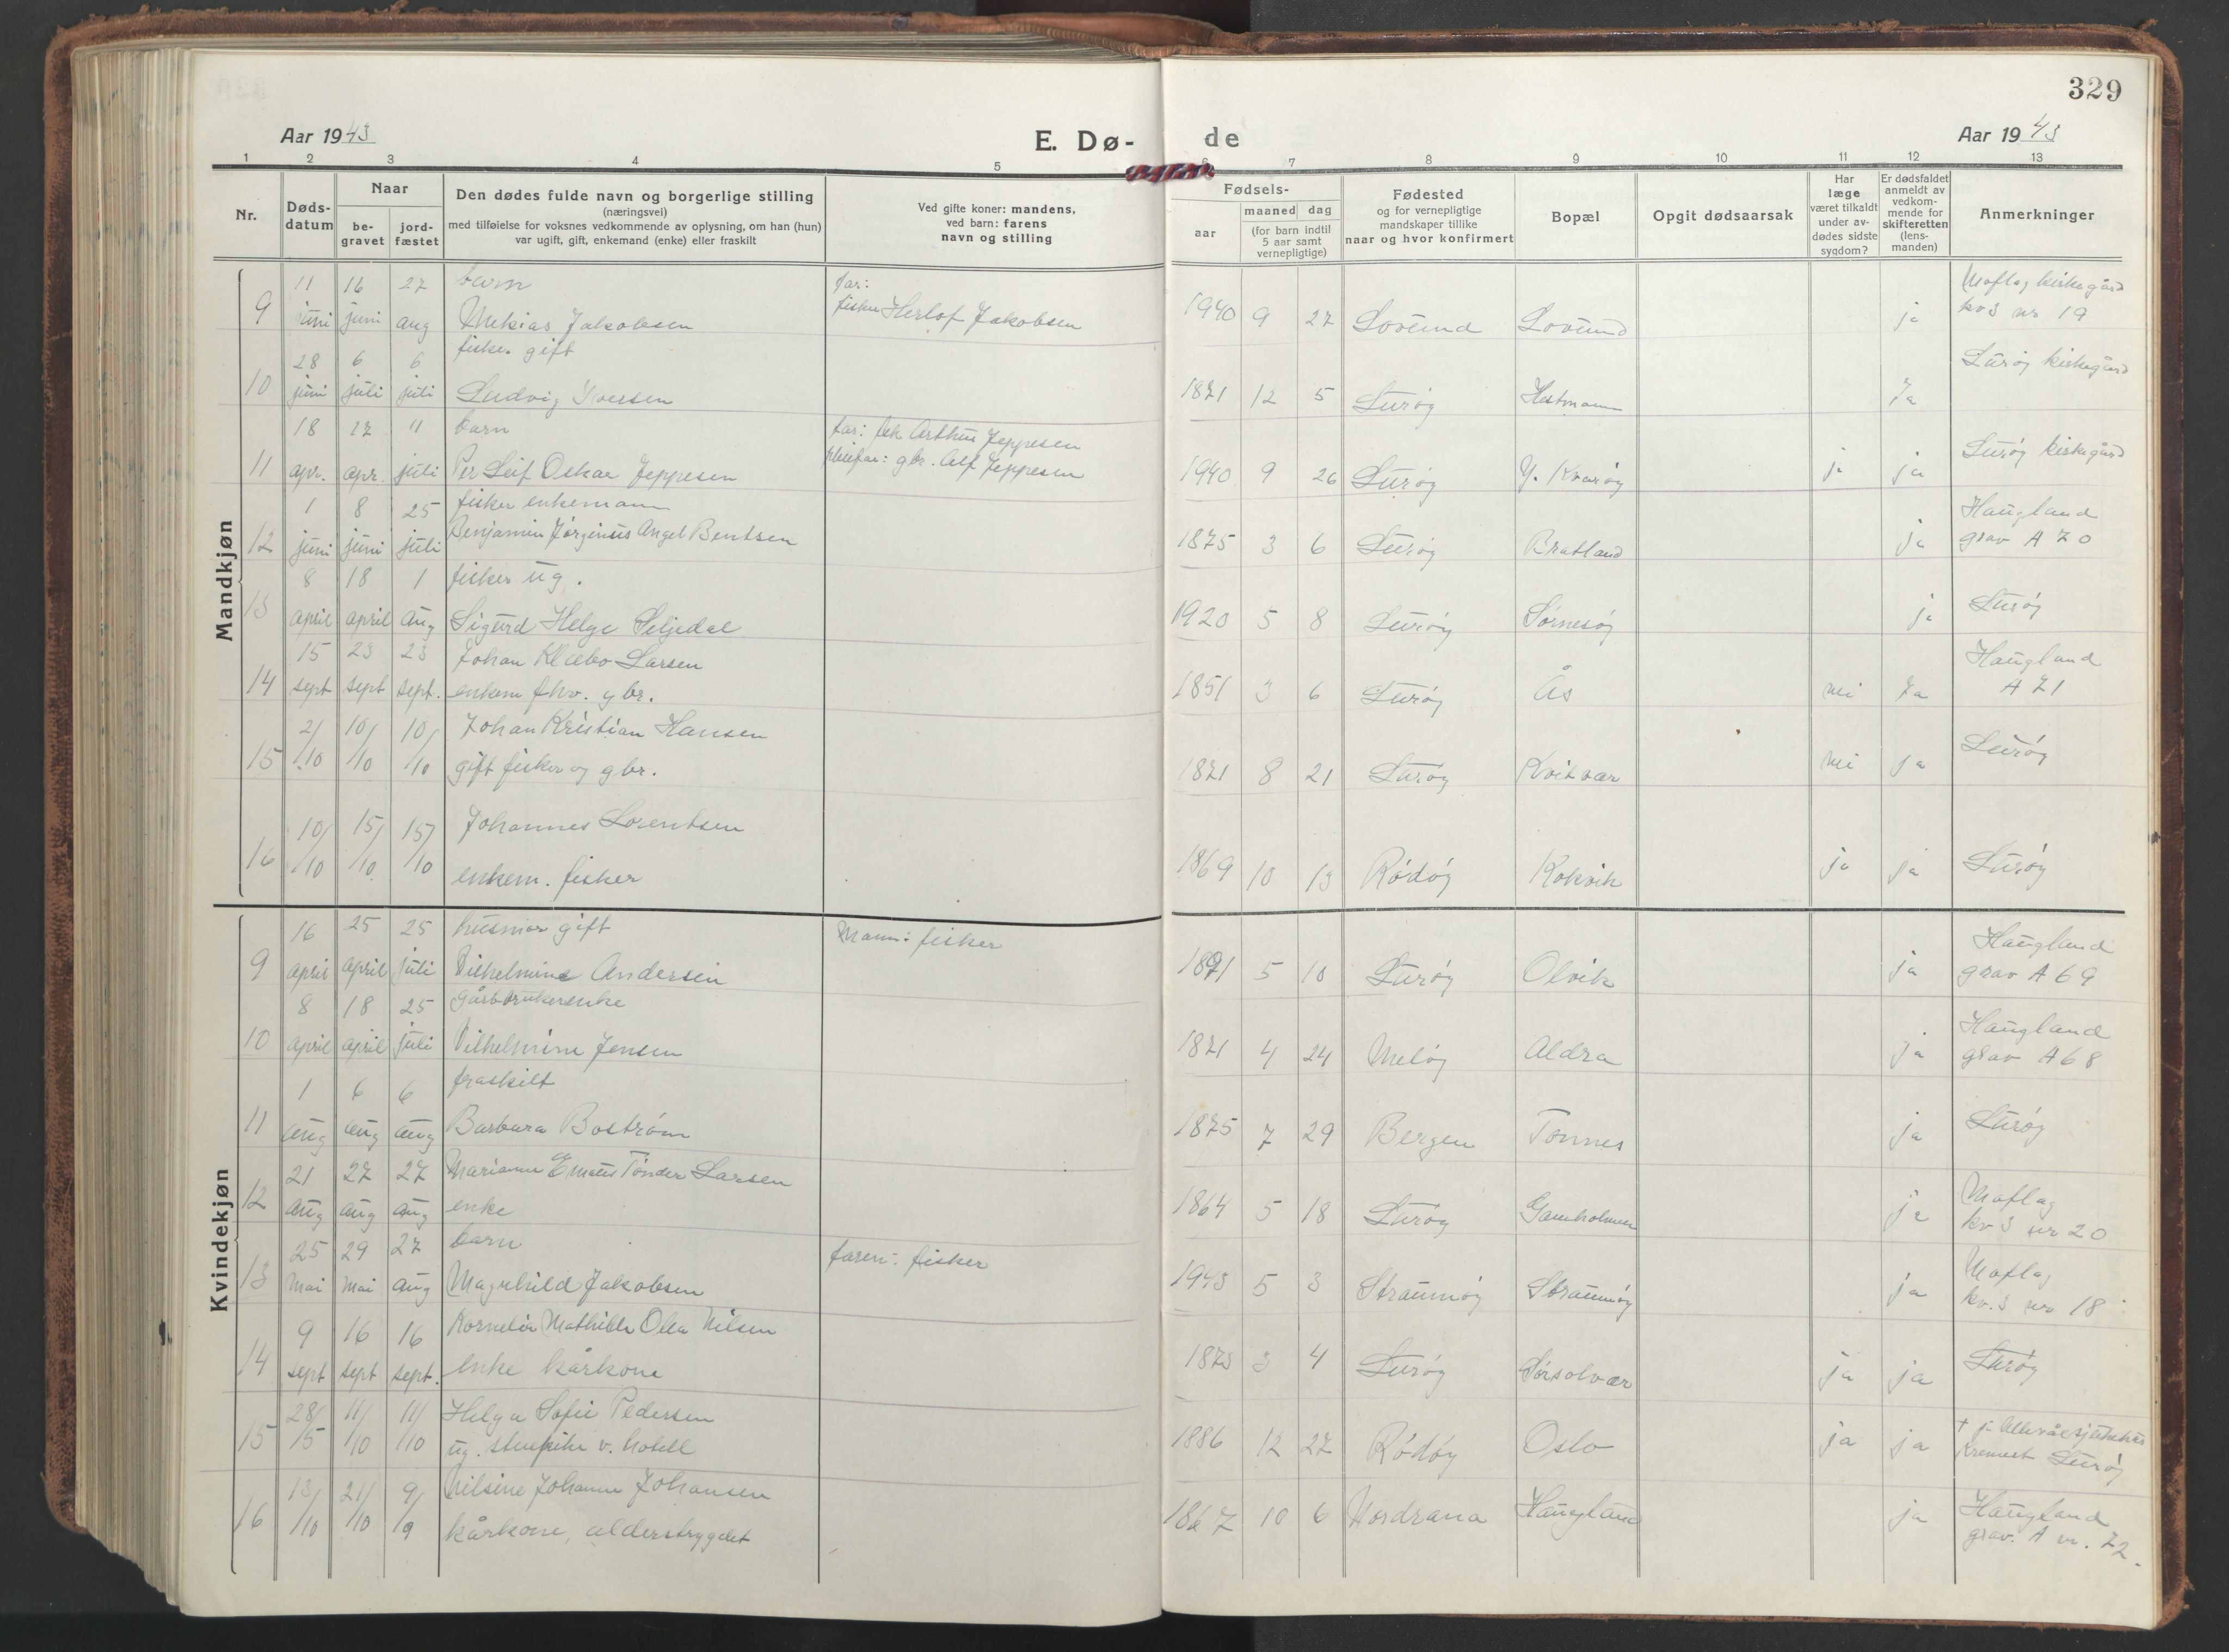 329
Aar 1943 E. Dø- de Aar 1943
1 2 3 4 5 6 7 8 9 10 11 12 13
Nr.
Døds-
datum
Naar
be-
gravet
jord-
fæstet
Den dødes fulde navn og borgerlige stilling
(næringsvei)
med tilføielse for voksnes vedkommende av oplysning, om han (hun)
var ugift, gift, enkemand (enke) eller fraskilt
Ved gifte koner: mandens,
ved barn: farens
navn og stilling
Fødsels-
aar
maaned dag
(for barn indtil
5 aar samt
vernepligtige)
Fødested
og for vernepligtige
mandskaper tillike
naar og hvor konfirmert
Bopæl
Opgit dødsaarsak
Har
læge
været tilkaldt
under av-
dødes sidste
sygdom?
Er dødsfaldet
anmeldt av
vedkom-
mende for
skifteretten
(lens-
manden)
Anmerkninger
Mandkjøn
11 16 27 barn far: Moflag kirkegård
9 juni juni aug Mekias Jakobsen fisker Herlof Jakobsen 1940 9 27 Lovund Lovund ja kv3 nr 19
28 6 6 fisker gift Lurøy kirkegård
10 juni juli juli Ludvig Iversen 1871 12 5 Lurøy Hestmann Ja
18 27 11 barn far: fisk Arthur Jeppesen
11 apr. apr. juli Per Leif Oskar Jeppesen pleiefar: gbr. Alf Jeppesen 1940 9 26 Lurøy Y. Kvarøy ja ja Lurøy kirkegård
1 8 25 fisker enkemann Haugland
12 juni juni juli Benjamin Jørginus Angel Bentsen 1875 3 6 Lurøy Bratland ja grav A 70
8 18 1 fisker ug.
13 april april aug Sigurd Helge Seljedal 1920 5 8 Lurøy Sørnesøy ja Lurøy
15 23 23 Johan Klæbo Larsen Haugland
14 sept sept sept. enkem fhv. gbr. 1851 3 6 Lurøy Ås nei Ja A 71
2/ 10/ 10/ Johan Kristian Hansen
15 /10 /10 /10 gift fisker og gbr. 1871 8 21 Lurøy Kvitvær nei ja Lurøy
10/ 15/ 15/ Johannes Lorentsen
16 /10 /10 /10 enkem. fisker 1869 10 13 Rødøy Kokvik ja ja Lurøy
Kvindekjøn
16 25 25 husmor gift Mann: fisker Haugland
9 april april juli Vilhelmine Andersen 1891 5 10 Lurøy Olvik ja grav A 69
8 18 25 gårbrukerenke Haugland
10 april april juli Vilhelmine Jensen 1871 4 24 Meløy Aldra ja grav A 68
1 6 6 fraskilt
11 aug aug aug Barbara Bostrøm 1875 7 29 Bergen Tonnes ja Lurøy
21 27 27 Mariann Tønder Larsen Moflag
12 aug aug aug enke 1864 5 18 Lurøy ja kv 3 nr 20
25 29 27 barn faren: fisker Moflag
13 Mai Mai aug Magnhild Jakobsen 1943 5 3 Straumøy Straumøy ja kv. 3 nr 18
9 16 16 Kornelia Mathilde Olea Nilsen
14 sept sept sept. enke kårkone 1873 3 4 Lurøy Sørsolvær ja ja Lurøy
28/ 11/ 11/ Helga Sofie Pedersen
15 /5 /10 /10 ug. stuepike v. hotell 1886 12 27 Rødøy Oslo ja ja Kremert Lurøy
13/ 21/ 9/ Nilsine Johanne Johansen Haugland
16 /10 /10 /9 kårkone, alderstrygdet 1867 10 6 Nordrana Haugland ja grav. A nr. 72.